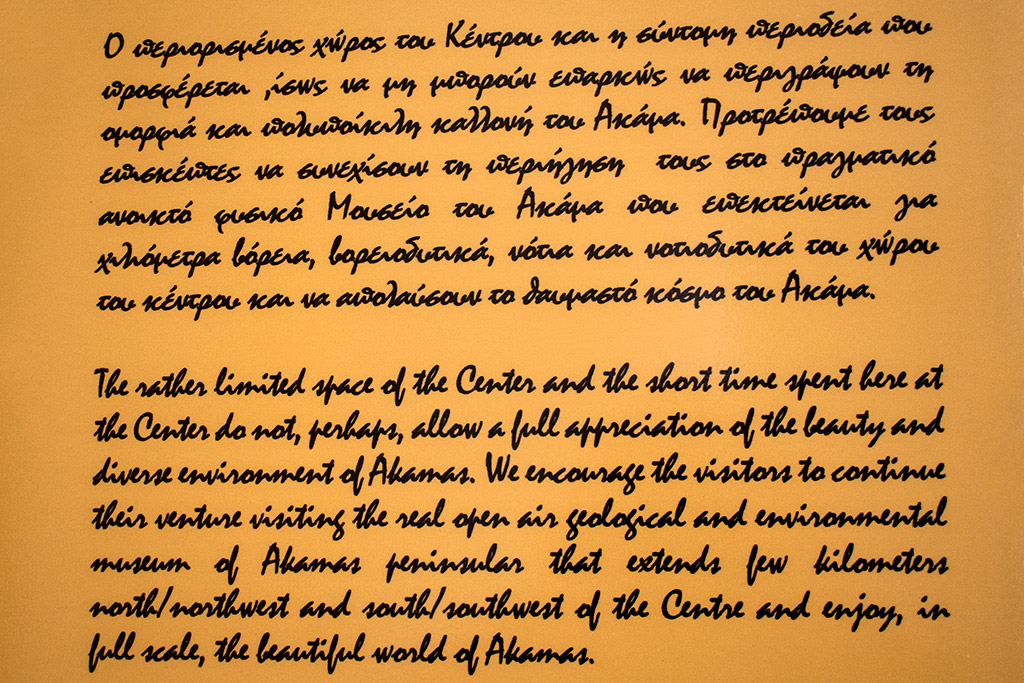 Ο περιορισμένος χώρος του Κέντρου και η σύντομη περιοδεία που
προσφέρεται ,ίσως να μη μπορούν επαρκώς να περιγράψουν τη
ομορφιά και πολυποίκιλη καλλονή του Ακάμα. Προτρέπουμε τους
επισκέπτες να συνεχίσουν τη περιήγηση τους στο πραγματικό
ανοικτό φυσικό Μουσείο του Ακάμα που επεκτείνεται για
χιλιόμετρα βόρεια, βορειοδυτικά, νότια και νοτιοδυτικά του χώρου
του κέντρου και να απολαύσουν το θαυμαστό κόσμο του Ακάμα.
The rather limited space of the Center and the short time spent here at
the Center do not, perhaps, allow a full appreciation of the beauty and
diverse environment of Akamas. We encourage the visitors to continue
their venture visiting the real open air geological and environmental
museum of Akamas peninsular that extends few kilometers
north/northwest and south/southwest of the Centre and enjoy, in
full scale, the beautiful world of Akamas.